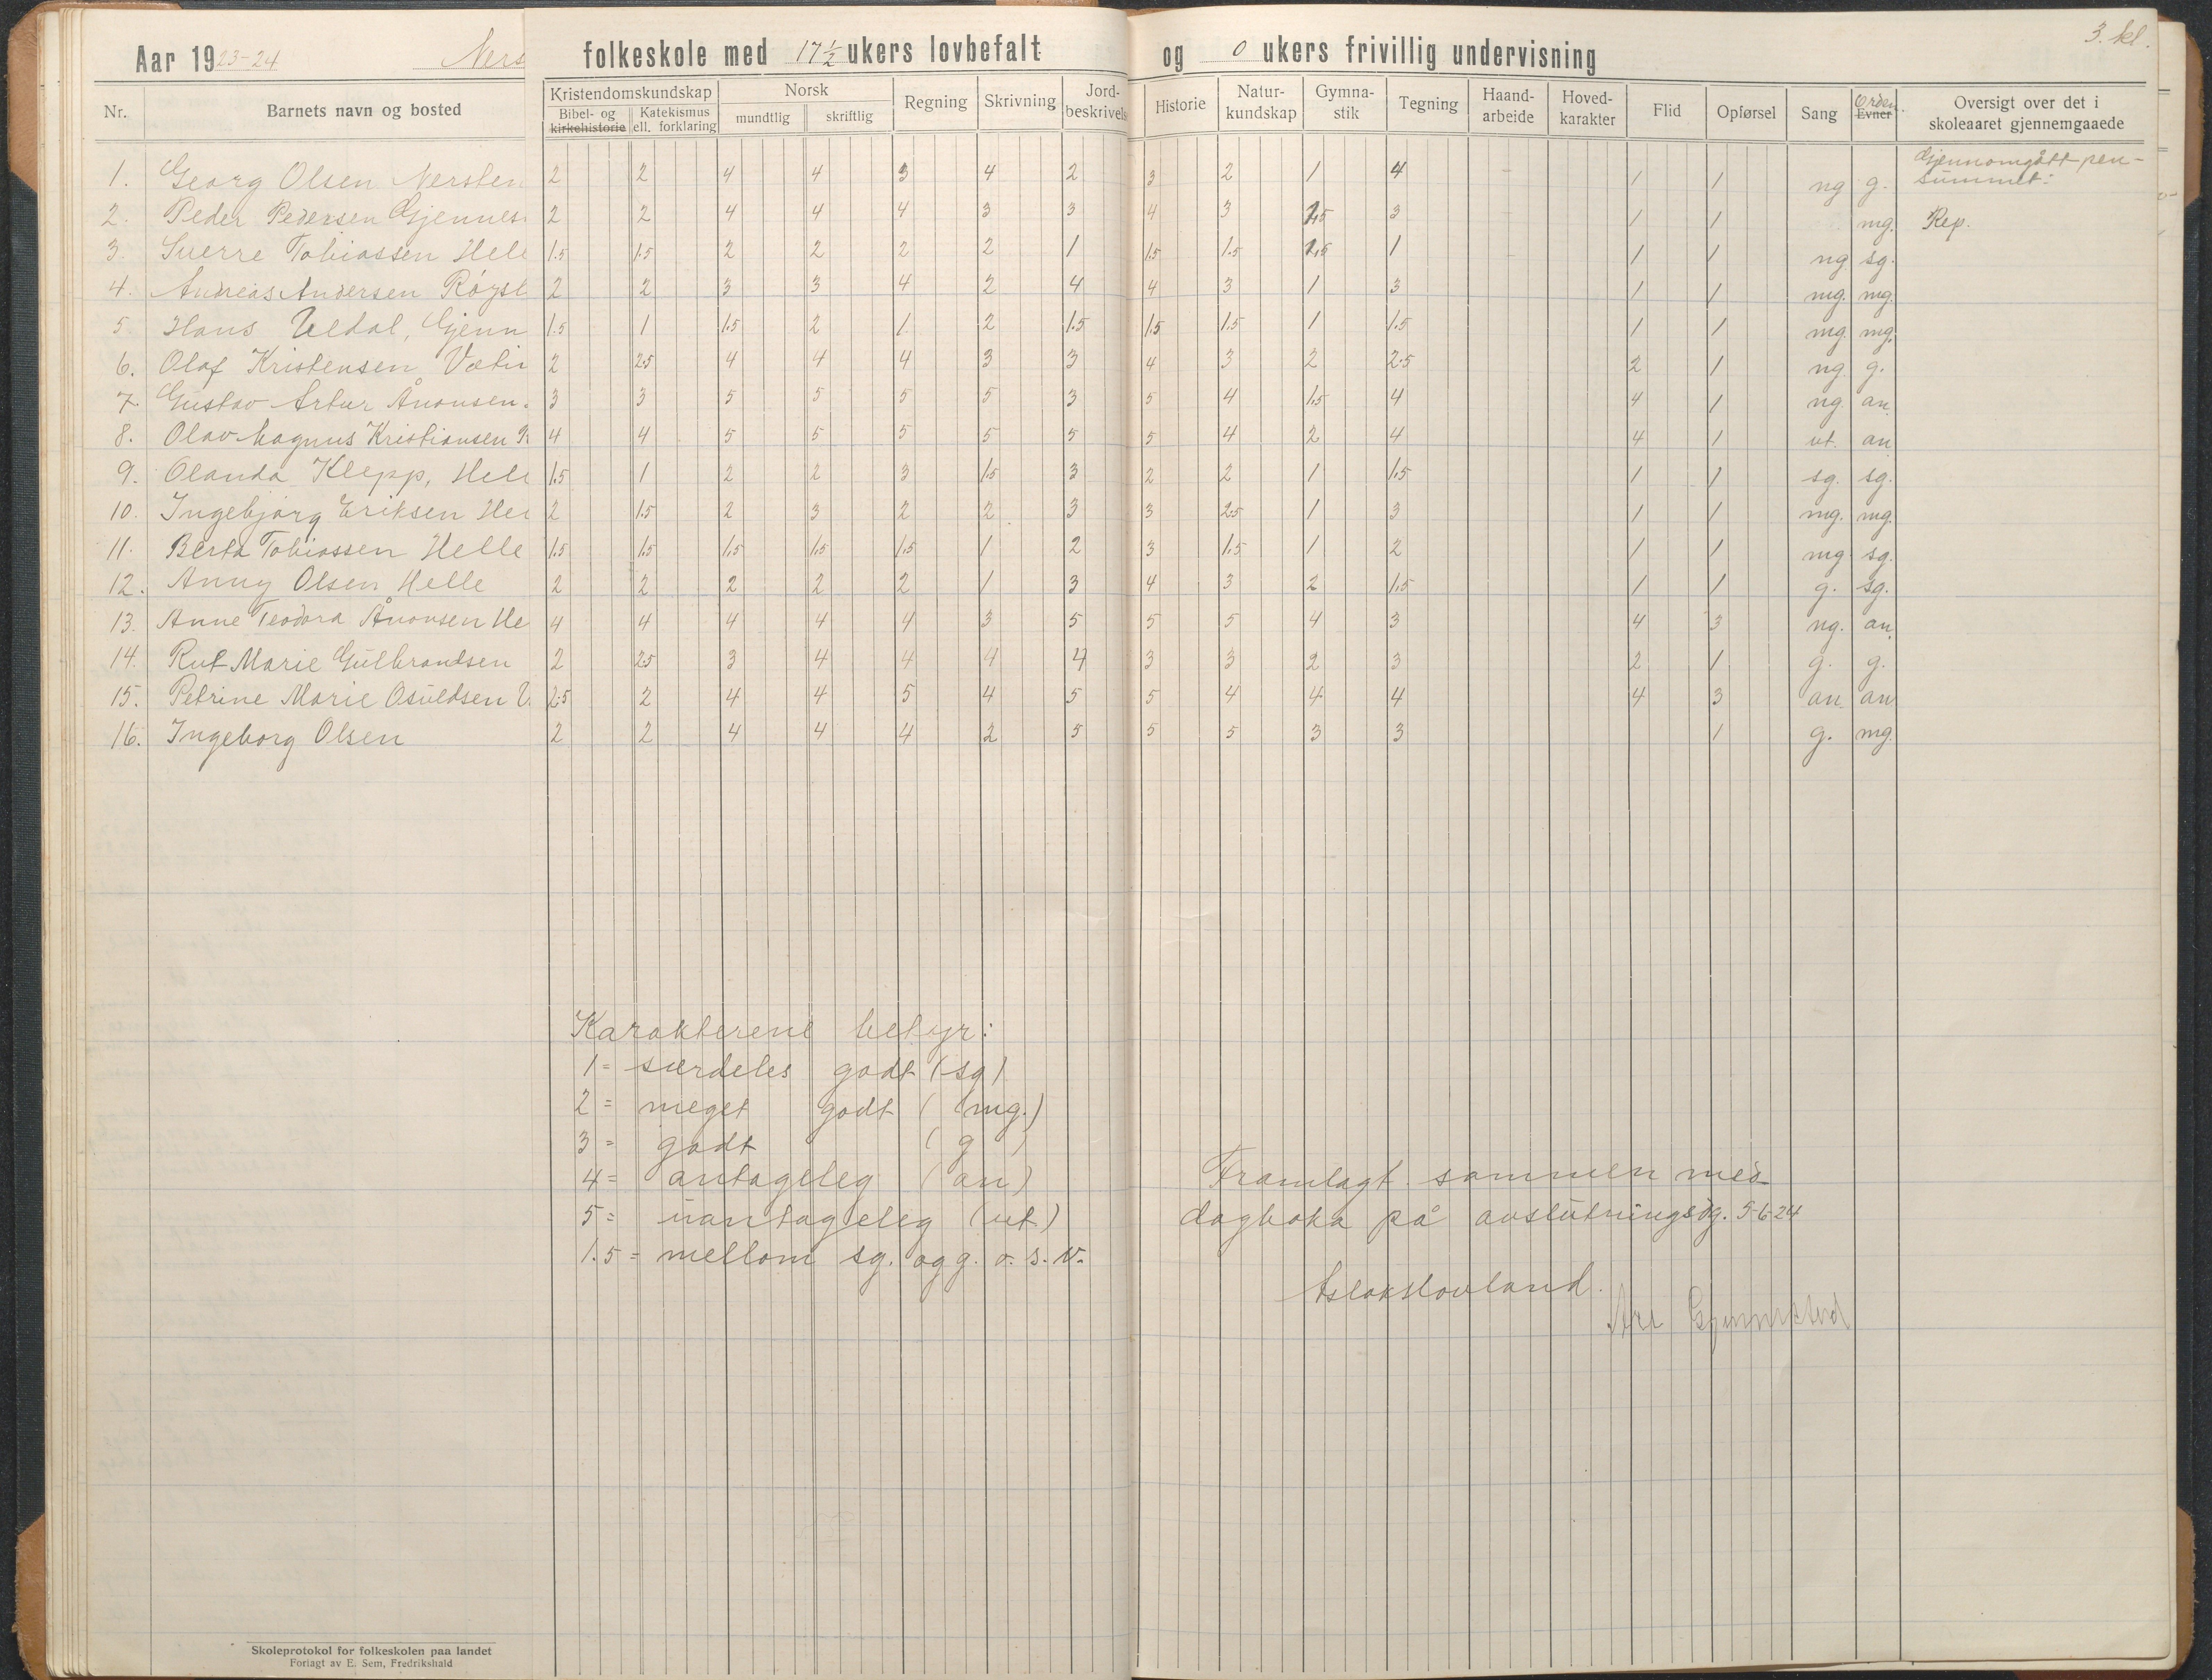 3. kl.
Aar 1923-24 Ners folkeskole med 17 1/2 ukers lovbefalt og 0 ukers frivillig undervisning
Nr. Barnets navn og bosted Kristendomskundskap Bibel- og kirkehistorie Katekismus ell. forklaring Norsk mundtlig skriftlig Regning Skrivning Jord-beskrivels Historie Natur-kundskap Gymna-stik Tegning Haand-arbeide Hoved-karakter Flid Opførsel Sang Orden. Evner Oversigt over det i skoleaaret gjennemgaaede
1. Georg Olsen Nersten 2 2 4 4 3 4 2 3 2 1 4 1 1 ng g. Gjennomgått pen-summet:
2. Peder Pedersen Gjennes 2 2 4 4 4 3 3 4 3 1,5 3 1 1 mg. Rep.
3. Sverre Tobiassen Hell 1.5 1.5 2 2 2 2 1 1.5 1.5 1,5 1 1 1 ng sg.
4. Andreas Andersen Röyst 2 2 3 3 4 2 4 4 3 1 3 1 1 mg. mg.
5 Hans Uldal, Gjenn 1.5 1 1.5 2 1 2 1.5 1.5 1.5 1 1.5 1 1 mg. mg.
6. Olaf Kristensen Vatn 2 2.5 4 4 4 3 3 4 3 2 2.5 2 1 ng. g.
7. Gustav Artur Ånonsen. 3 3 5 5 5 5 3 5 4 1.5 4 4 1 ng. an.
8. Olav Magnus Kristiansen 4 4 5 5 5 5 5 5 4 2 4 4 1 ut. an
9. Olanda Klepp, Hell 1.5 1 2 2 3 1.5 3 2 2 1 1.5 1 1 sg. sg.
10. Ingebjørg Eriksen Hel 2 1.5 2 3 2 2 3 3 2.5 1 3 1 1 mg. mg.
11. Berta Tobiassen Helle 1.5 1.5 1.5 1.5 1.5 1 2 3 1.5 1 2 1 1 mg sg.
12. Anny Olsen Helle 2 2 2 2 2 1 3 4 3 2 1.5 1 1 g. sg.
13. Anne Teodora Ånonsen He 4 4 4 4 4 3 5 5 5 4 3 4 3 ng. an.
14. Rut Marie Gulbrandsen 2 2.5 3 4 4 4 4 3 3 2 3 2 1 g. g.
15. Petrine Marie Osuldsen V. 2.5 2 4 4 5 4 5 5 4 4 4 4 3 an. an
16. Ingeborg Olsen 2 2 4 4 4 2 5 5 5 3 3 1 g. mg.
Karakterene betyr:
1 = særdeles godt (sg)
2 = meget godt (mg.)
3 = godt (g)
4 = antageleg (an)
5 = uantageleg (ut)
1.5 = mellom sg. og g. o. s. v.
Framlagt sammen med
dagboka på avslutningsdg. 5-6-24
Aslak Hovland.
Are Gjennestad
Skoleprotokol for folkeskolen paa landet
Forlagt av E. Sem, Fredrikshald